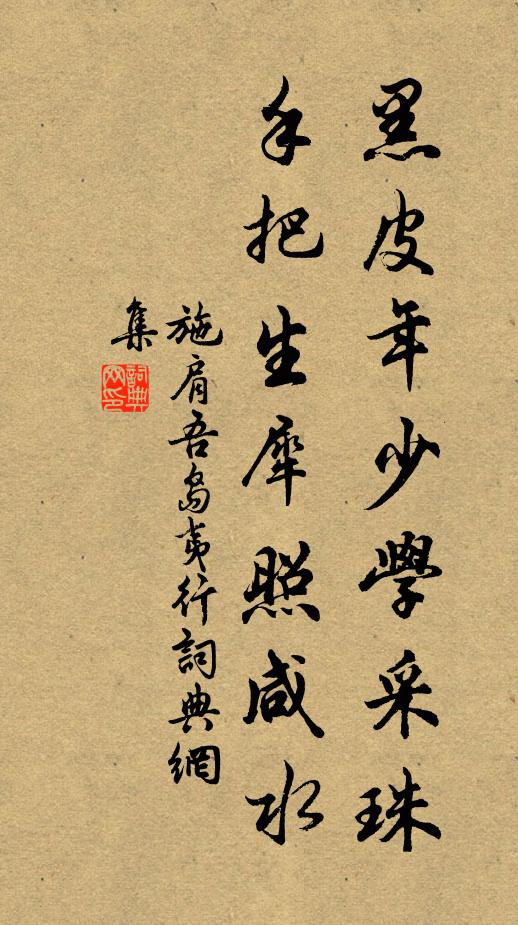 黑皮年少學采珠
手把生犀照咸水
施肩吾島夷行詞典網
集
詞典
网印